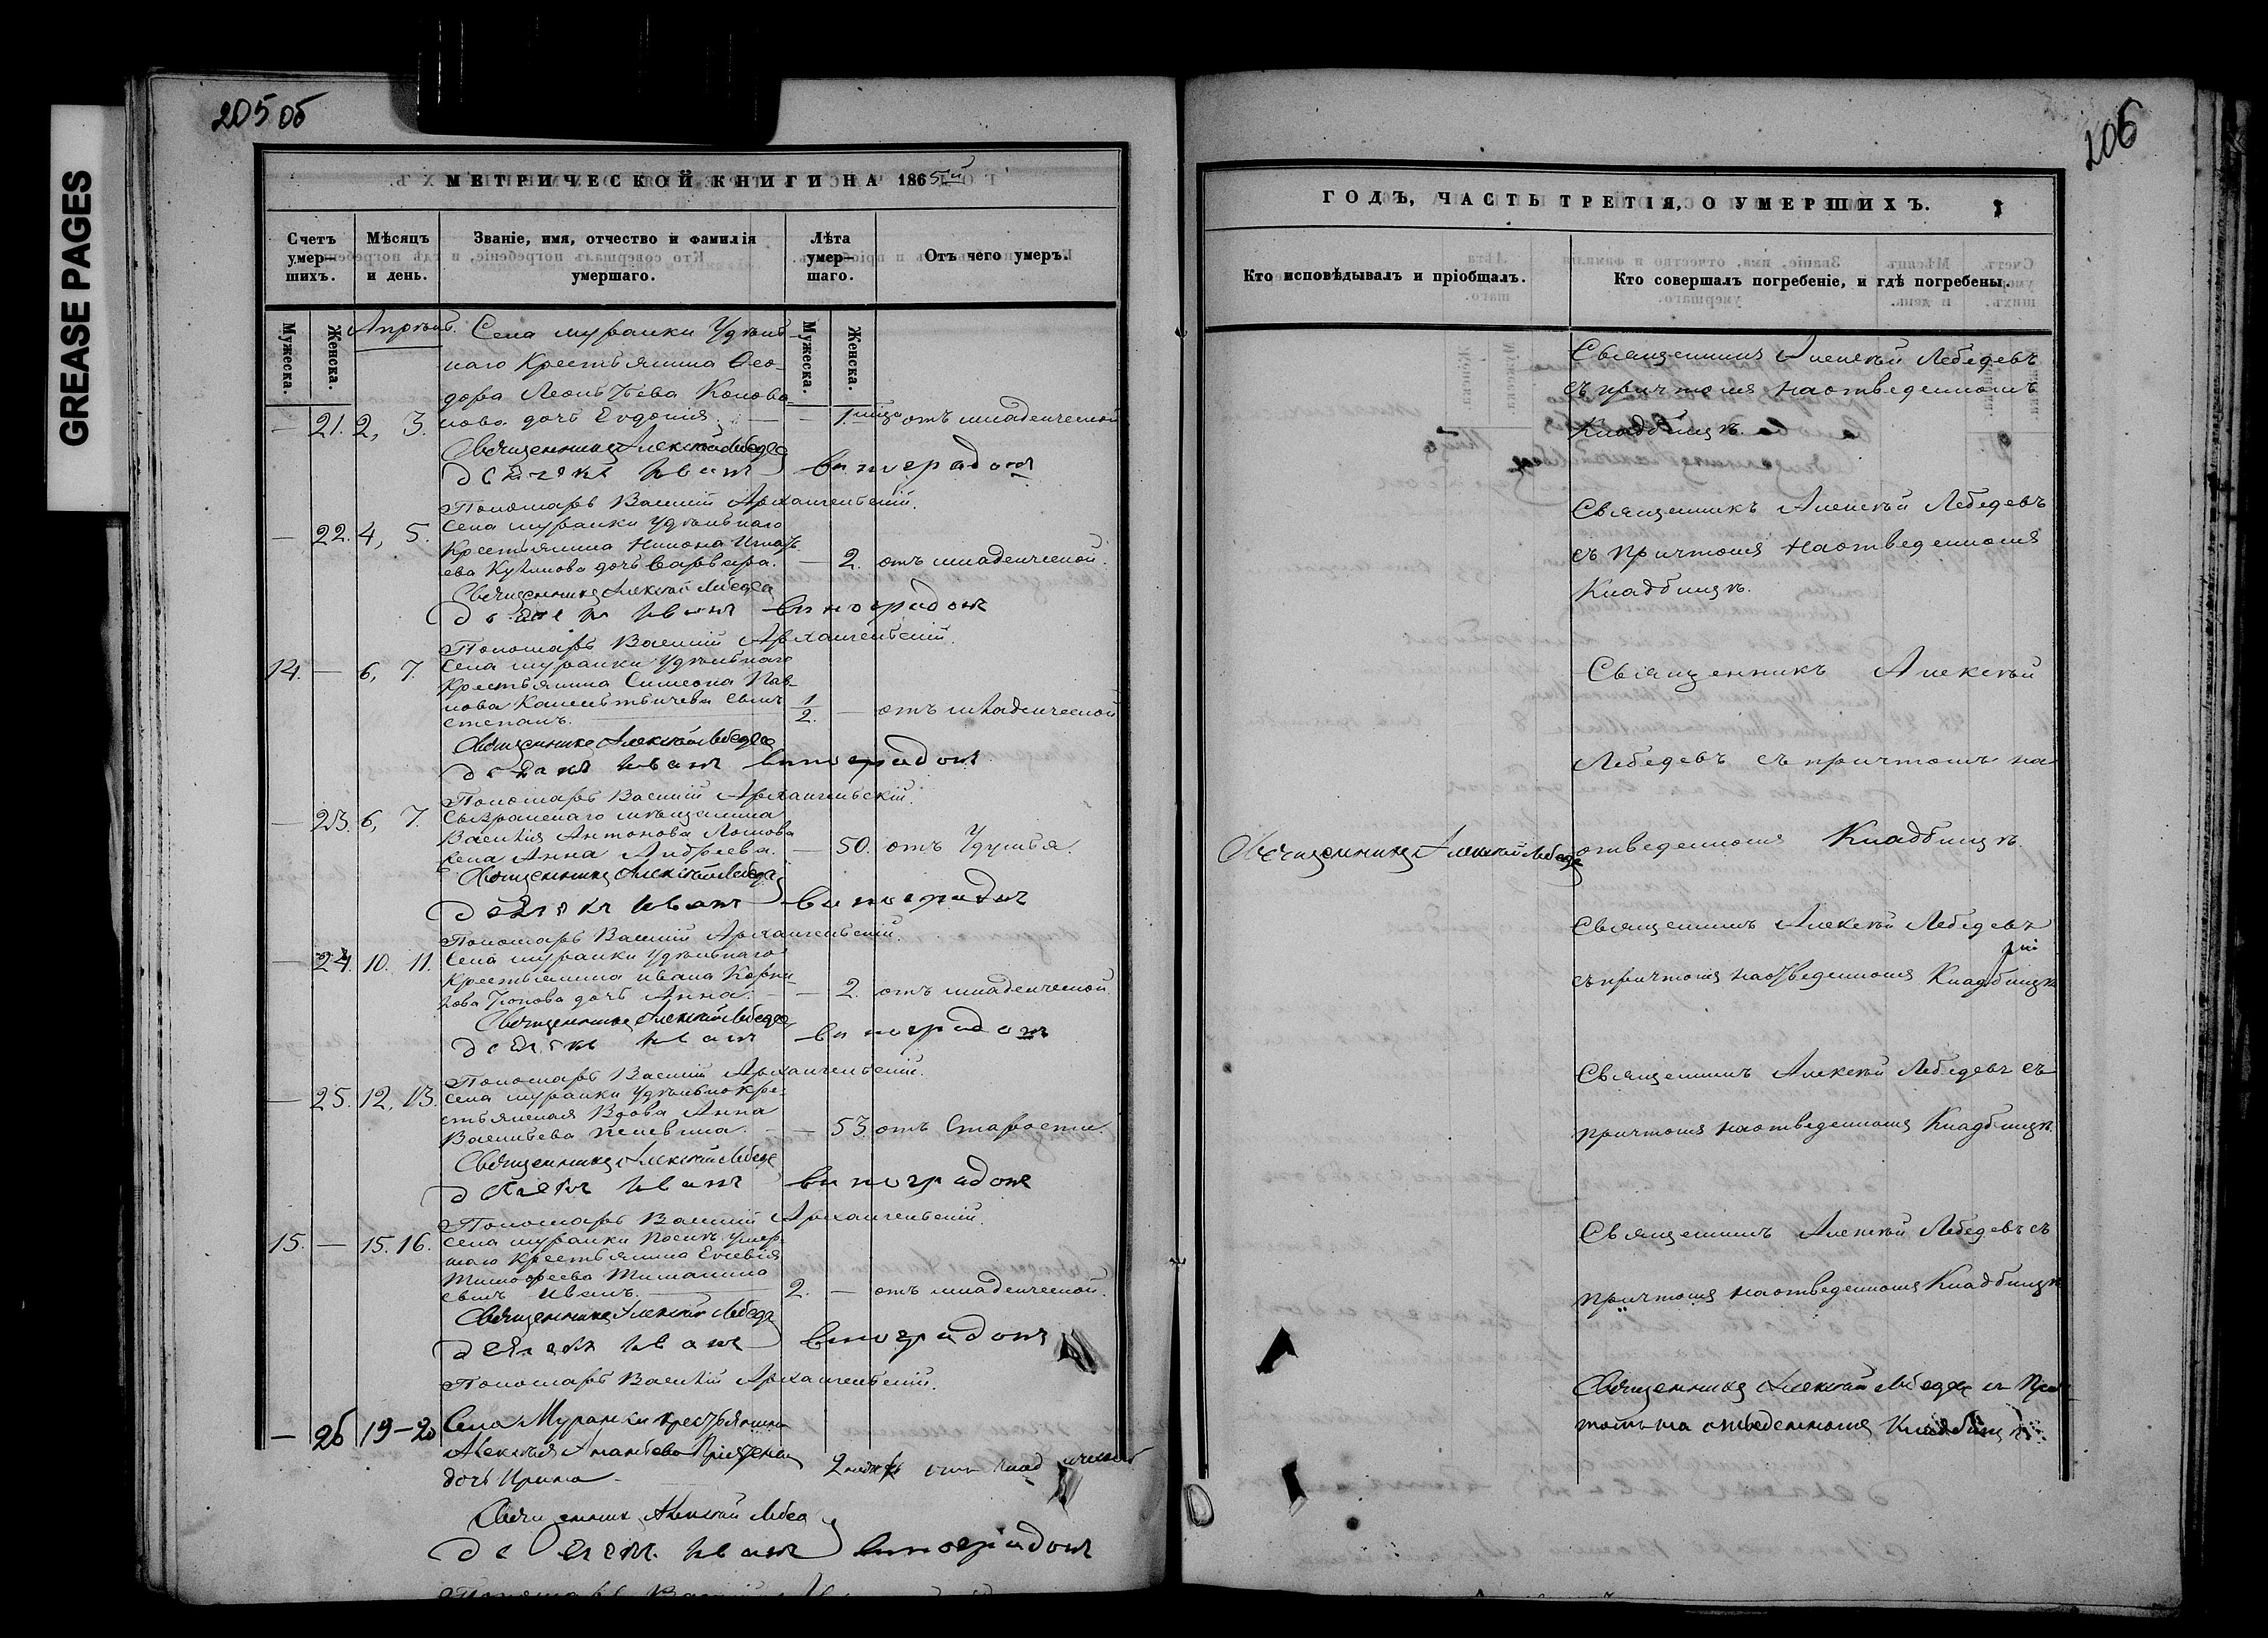 GREASE PAGES
205 об
МЕТРИЧЕСКОЙ КНИГИ НА 1865й
Счетъ умер-шихъ.
Мѣсяцъ и день.
Званіе, имя, отчество и фамилія умершаго.
Лѣта умер-шаго.
Отъ чего умеръ.
Мужеска.
Женска.
Мужеска.
Женска.
Апрѣль.
Села Муранки Удѣль-
наго Крестьянина Ѳео-
дора Леонтьева Коново-
лова дочь Евдокія.
— 21. 2, 3. — 1. отъ младенческой
Священникъ Алексѣй Лебедевъ
Дьячекъ Иванъ Виноградовъ
Пономарь Василій Архангельскій.
Села Муранки Удѣльнаго
— 22. 4, 5.
Крестьянина
дочь Варвара. — 2. отъ младенческой.
Священникъ Алексѣй Лебедевъ
Дьячекъ Иванъ Виноградовъ
Пономарь Василій Архангельскій.
14. — 6, 7. Села Муранки Удѣльнаго
Крестьянина Симеона Пав-
лова сынъ
Степанъ. 1/2. — отъ младенческой
Священникъ Алексѣй Лебедевъ
Дьячекъ Иванъ Виноградовъ
Пономарь Василій Архангельскій.
— 23. 6, 7. Сызранскаго мѣщанина
Василія Антонова
жена Анна Андреева. — 50. отъ Удушья.
Священникъ Алексѣй Лебедевъ
Дьячекъ Иванъ Виноградовъ
Пономарь Василій Архангельскій.
— 24. 10. 11. Села Муранки Удѣльнаго
Крестьянина Ивана
дочь Анна. — 2. отъ младенческой
Священникъ Алексѣй Лебедевъ
Дьячекъ Иванъ Виноградовъ
Пономарь Василій Архангельскій.
— 25. 12, 13. Села Муранки Удѣльнокре-
стьянская Вдова Анна
Васильева — 53. отъ Старости.
Священникъ Алексѣй Лебедевъ
Дьячекъ Иванъ Виноградовъ
Пономарь Василій Архангельскій.
15. — 15. 16. Села Муранки Послѣ умер-
шаго Крестьянина Евсевія
Тимофеева
сынъ Иванъ. 2. — отъ младенческой.
Священникъ Алексѣй Лебедевъ
Дьячекъ Иванъ Виноградовъ
Пономарь Василій Архангельскій.
— 26 19-20 Села Муранки крестьянина
Алексѣя
дочь Ирина 2
Священникъ Алексѣй Лебедевъ
Дьячекъ Иванъ Виноградовъ
206
ГОДЪ, ЧАСТЬ ТРЕТІЯ, О УМЕРШИХЪ.
Кто исповѣдывалъ и пріобщалъ.
Кто совершалъ погребеніе, и гдѣ погребены.
Священникъ Алексѣй Лебедевъ
съ причтомъ на отведенномъ
Кладбищѣ.
Священникъ Алексѣй Лебедевъ
съ причтомъ на отведенномъ
Кладбищѣ.
Священникъ Алексѣй
Лебедевъ съ причтомъ на
Священникъ Алексѣй Лебедевъ
отведенномъ Кладбищѣ.
Священникъ Алексѣй Лебедевъ
съ причтомъ на отведенномъ Кладбищѣ
Священникъ Алексѣй Лебедевъ съ
причтомъ на отведенномъ Кладбищѣ.
Священникъ Алексѣй Лебедевъ съ
причтомъ на отведенномъ Кладбищѣ
Священникъ Алексѣй Лебедевъ съ При-
томъ на отведенномъ Кладбищѣ